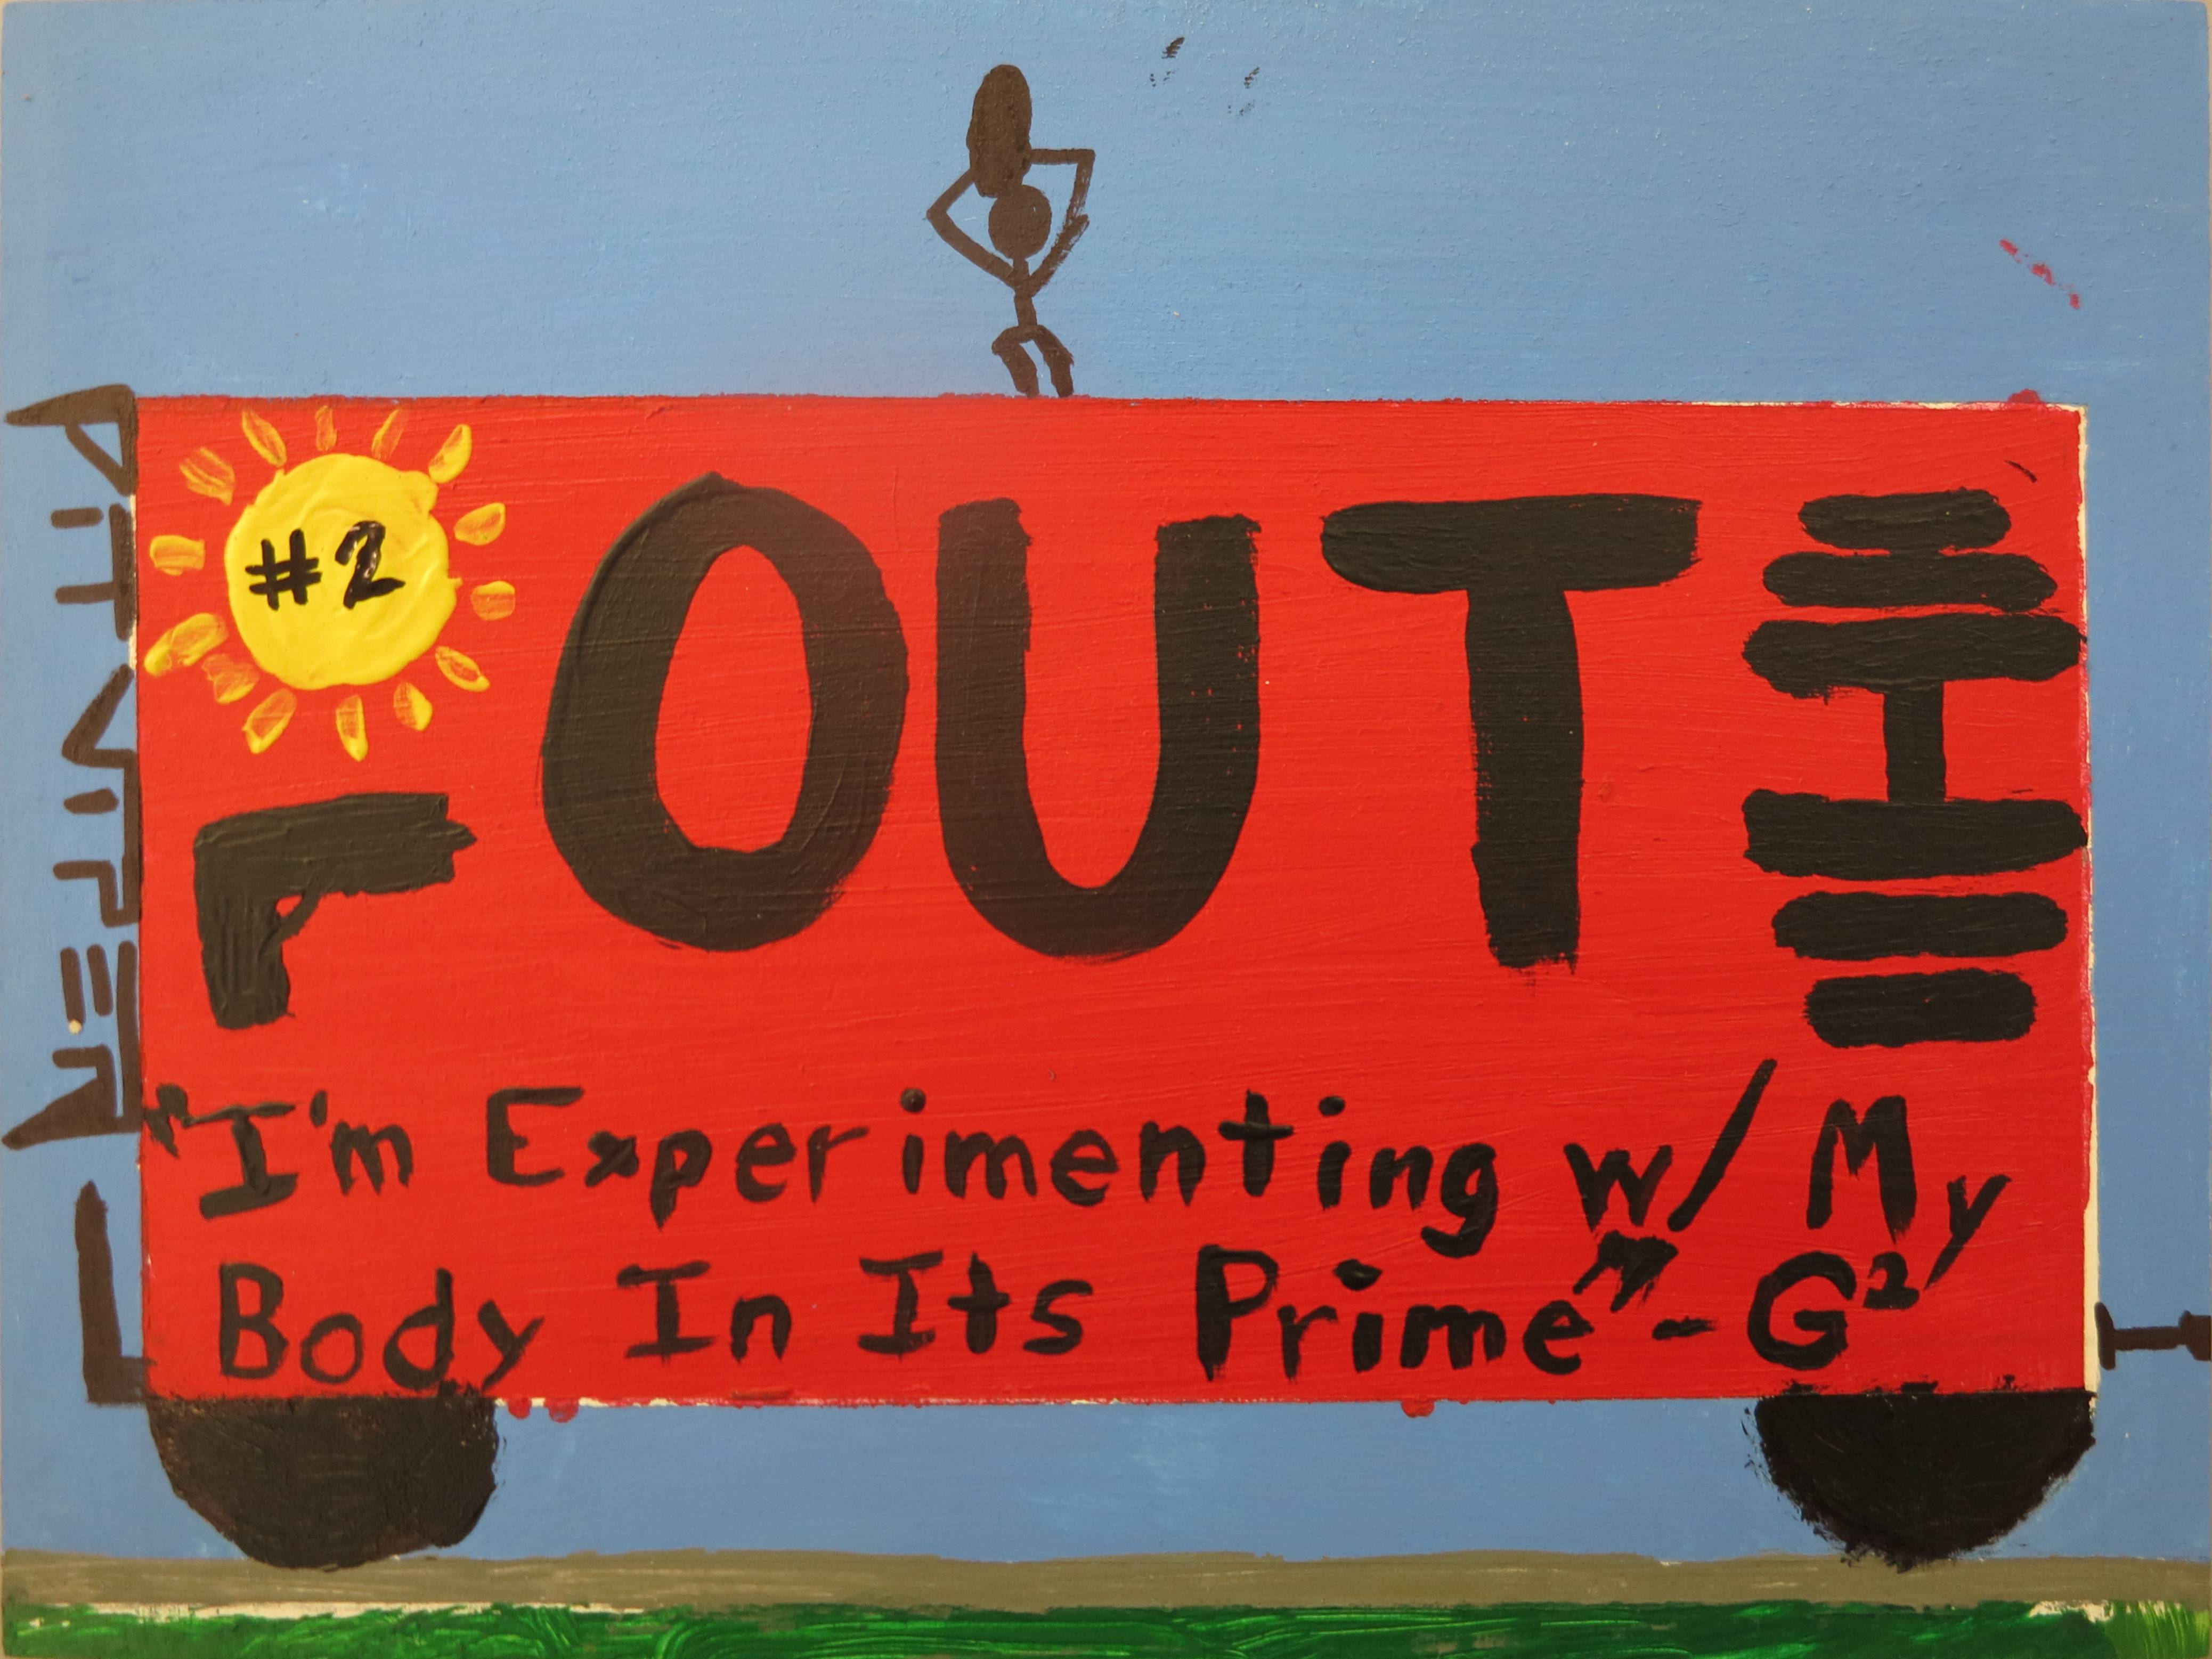 #2
OUT
"I'm Experimenting w/ My
Body In Its Prime" - G²